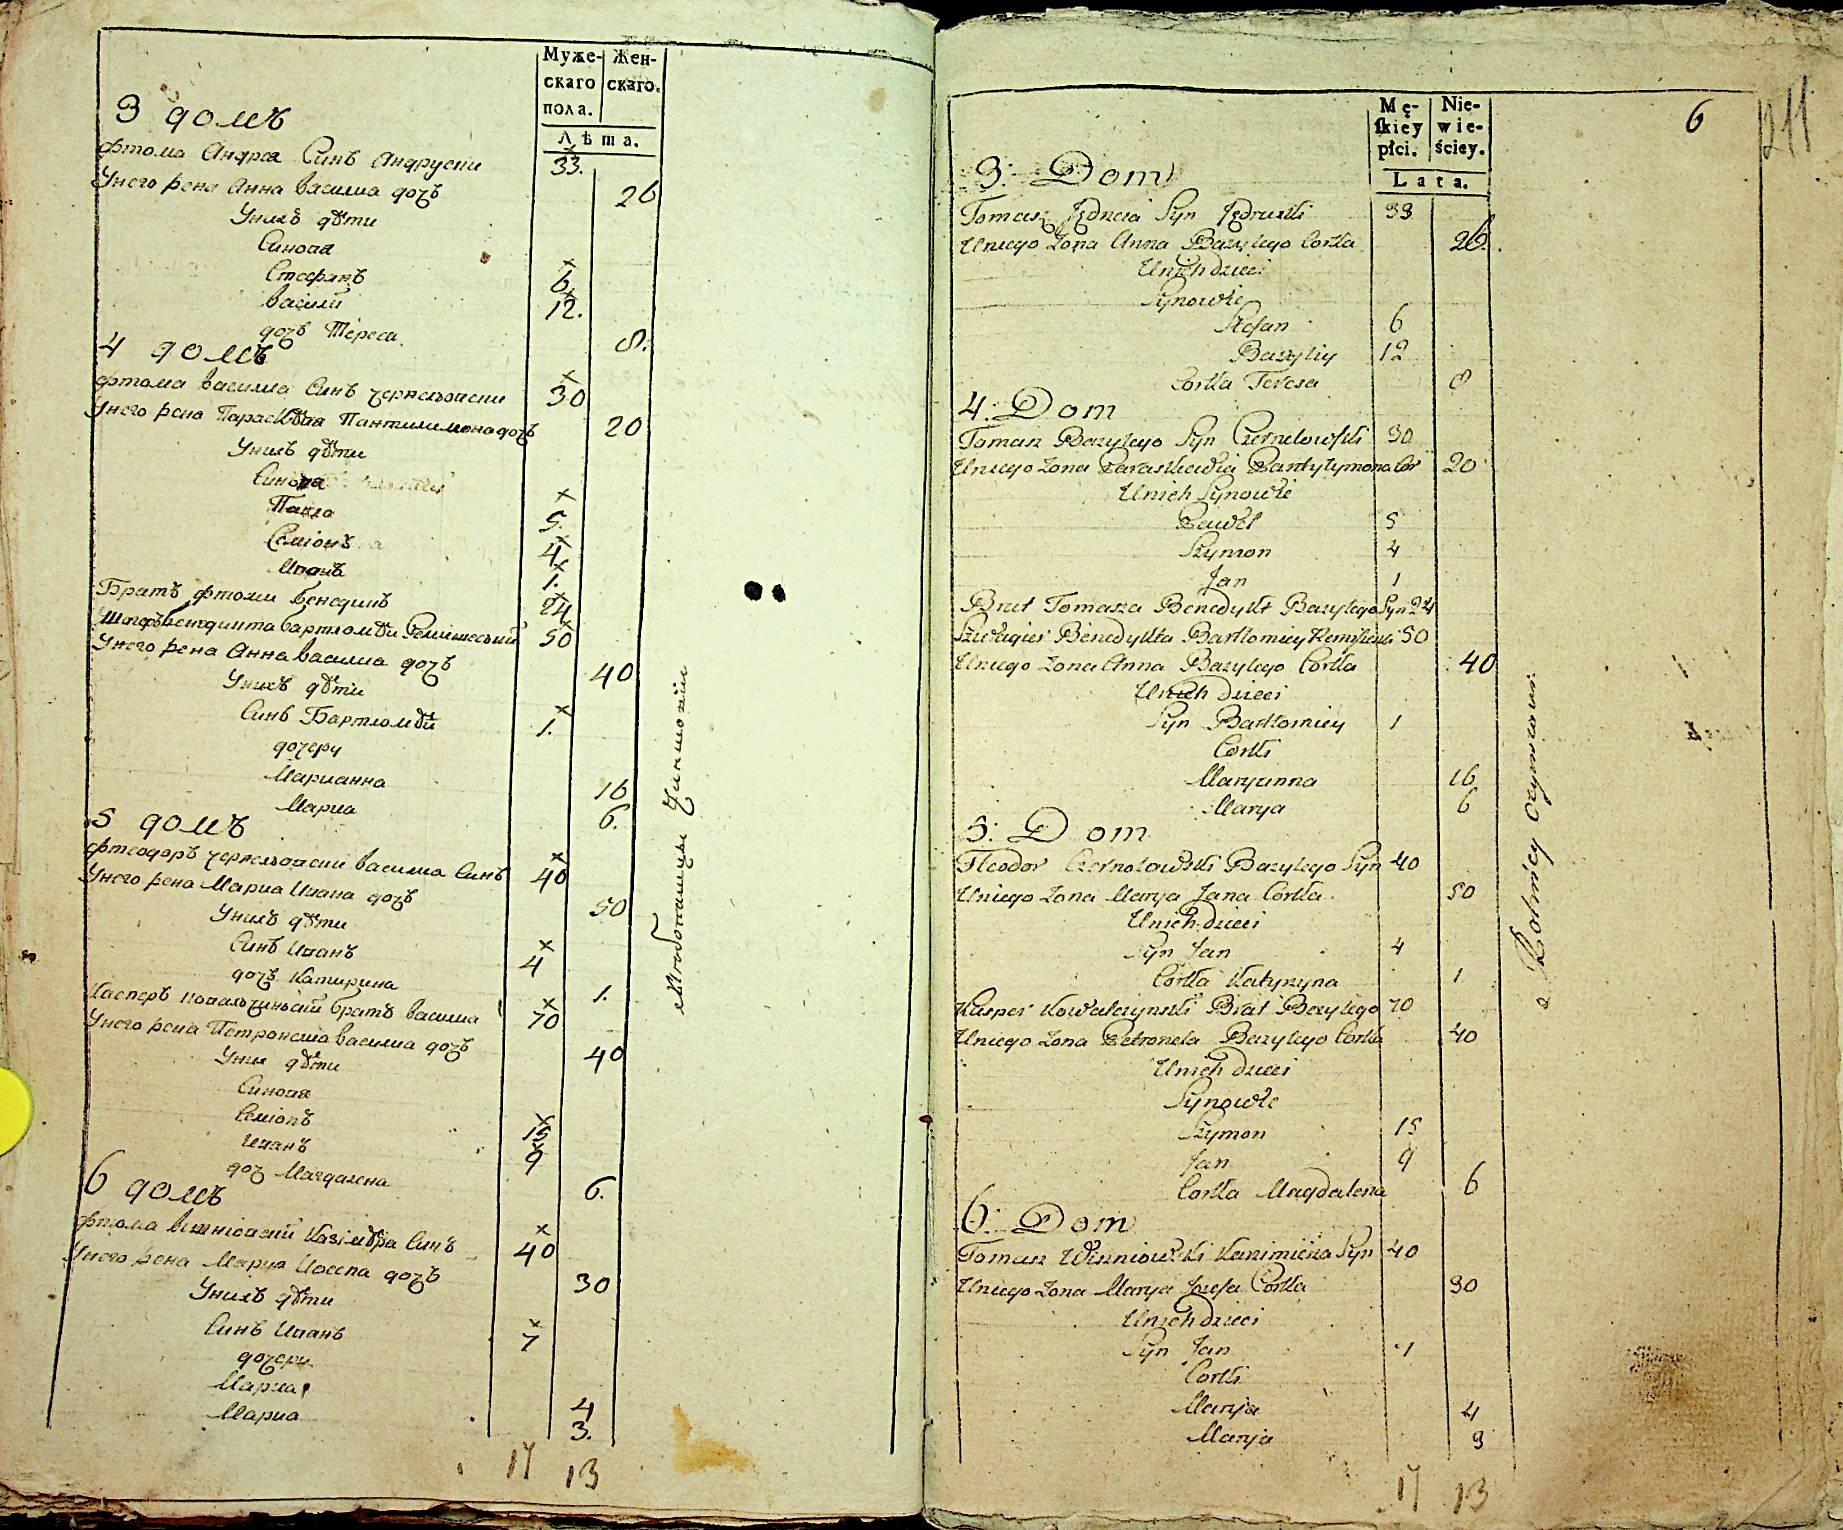 Муже-
скаго
пола.
Жен-
скаго.
Лѣта.
3 домъ
фтома Андреа Синъ Андруски 33.
Унего жена Анна василиа дочъ 26
Унихъ дѣти
Синова
Стефанъ 6
васили 12.
дочъ Тереса 8.
4 домъ
фтома василиа Синъ чернеловски 30
Унего жена Параскѣвиа Пантилимона дочъ 20
Унихъ дѣти
Синова
Павло 5.
Семіонъ 4
Иванъ 1.
Братъ фтоми Бенедиктъ 24
Бенедикта бартломѣй 50
Унего жена Анна василиа дочъ 40
Унихъ дѣти
Синъ Бартломѣй 1.
дочери
Марианна 16
Мариа 6.
5 домъ
фтеодоръ чернеловскій василиа Синъ 40
Унего жена Мариа Ивана дочъ 50
Унихъ дѣти
Синъ Иванъ 4
дочъ Катирина 1.
Касперъ ковальчинскій братъ василиа 70
Унего жена Петронела василиа дочъ 40
Уних дѣти
Синова
Семіонъ 15
Иванъ 9
доч Магдалена 6.
6 домъ
фтома вишніовскій Казімѣра Синъ 40
Унего жена Мариа Иосепа дочъ 30
Унихъ дѣти
Синъ Иванъ 7
дочери
Мариа 4
Мариа 3.
17 13
6
211
Mę-
skiey
płci.
Nie-
wie-
ściey.
Lata.
3: Dom
Tomasz Jędrzeia Syn Jędruski 33
Uniego Zona Anna Bazylego Corka 26.
Unich dzieci
Synowie
Stefan 6
Bazyliy 12
Corka Teresa 8
4: Dom
Tomasz Bazylego Syn Czernelowski 30
Uniego Zona Paraskiewia Pantylymona Cor 20
Unich Synowie
Paweł 5
Szymon 4
Jan 1
Brat Tomasza Benedykt Bazylego Syn 24
Szwagier Benedykta Bartłomiey 50
Uniego Zona Anna Bazylego Corka 40
Unich dzieci
Syn Bartłomiey 1
Corki
Maryanna 16
Marya 6
5: Dom
Fteodor Czernelowski Bazylego Syn 40
Uniego Zona Marya Jana Corka 50
Unich dzieci
Syn Jan 4
Corka Katyrzyna 1
Kasper Kowalczynski Brat Bazylego 70
Uniego Zona Petronela Bazylego Corka 40
Unich dzieci
Synowie
Szymon 15
Jan 9
Corka Magdalena 6
6: Dom
Tomasz Wiszniowski Kazimierza Syn 40
Uniego Zona Marya Jozefa Corka 30
Unich dzieci
Syn Jan 7
Corki
Marya 4
Marya 3
Rolnicy czynszowi
17 13